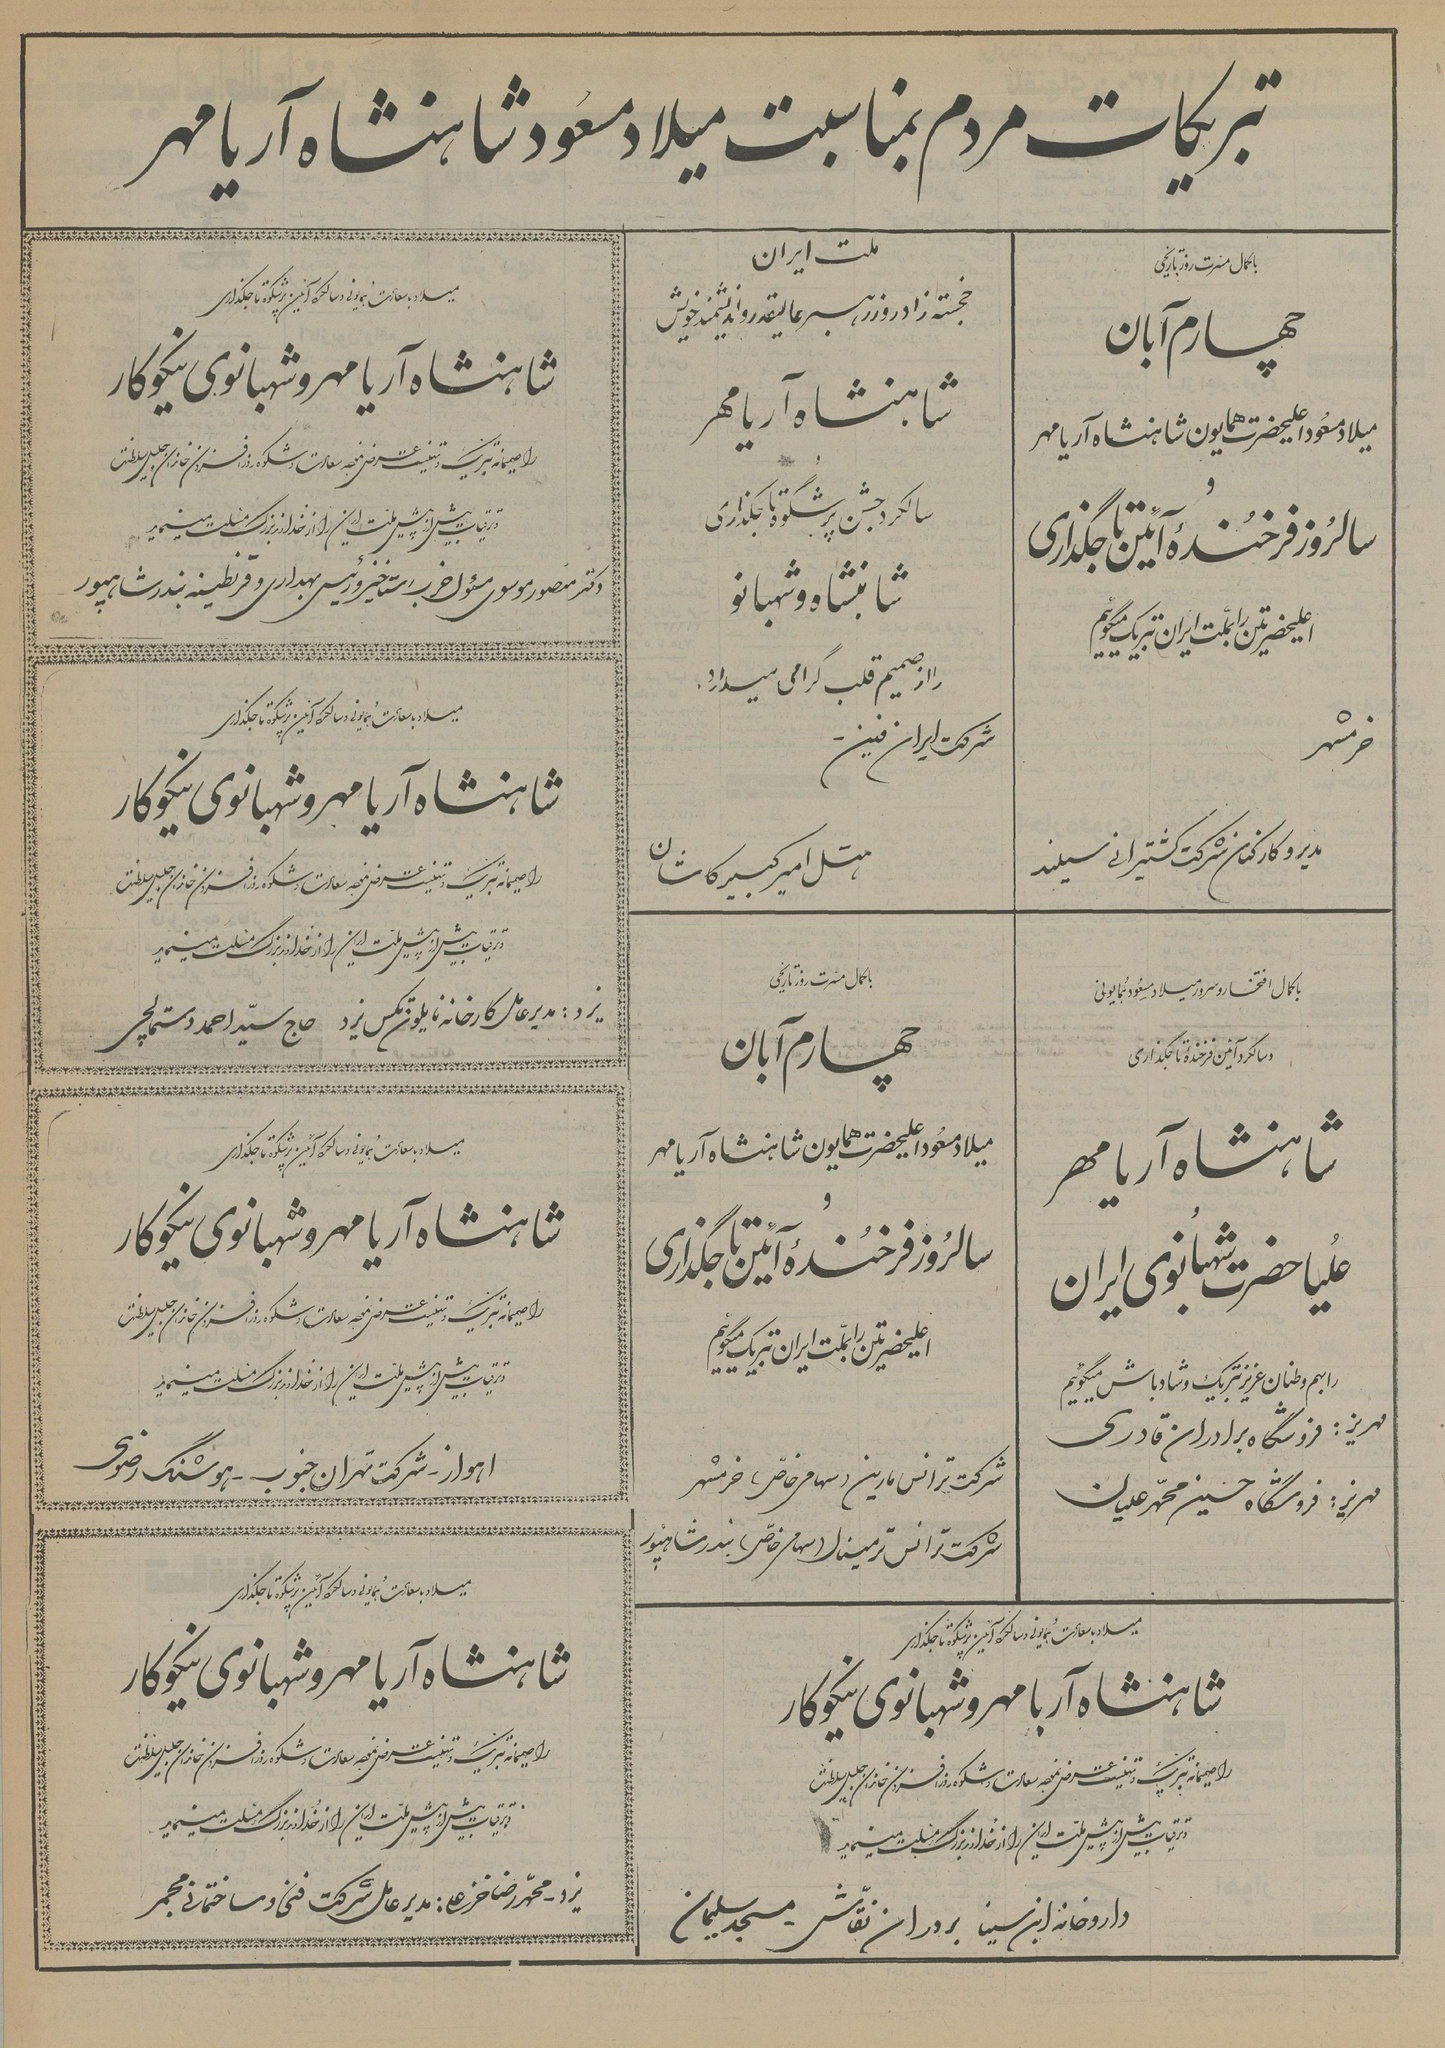 تبریکات مردم بمناسبت میلاد مسعود شاهنشاه آریامهر
باکمال مسرت روز تاریخی
چهارم آبان
میلاد مسعود اعلیحضرت همایون شاهنشاه آریامهر
و
سالروز فرخندهٔ آئین تاجگذاری
اعلیحضرتین را بملت ایران تبریک میگوئیم
خرمشهر
مدیر و کارکنان شرکت کشتیرانی سیلند
ملت ایران
خجسته زادروز رهبر عالیقدر و اندیشمند خویش
شاهنشاه آریامهر
و
سالگرد جشن پرشگوه تاجگذاری
شاهنشاه و شهبانو
را از صمیم قلب گرامی میدارد.
شرکت ایران فین -
هتل امیرکبیر کاشان
میلاد با سعادت همایونی و سالگرد آئین پرشکوه تاجگذاری
شاهنشاه آریامهر و شهبانوی نیکوکار
را صمیمانه تبریک و تهنیت عرض نموده سعادت و شکوه روزافزون خاندان جلیل سلطنت
و ترقیات بیش از پیش ملت ایران را از خداوند بزرگ مسئلت مینماید
دکتر منصور موسوی مسؤل حزب رستاخیز و رئیس بهداری و قرنطینه بندر شاهپور
میلاد با سعادت همایونی و سالگرد آئین پرشکوه تاجگذاری
شاهنشاه آریامهر و شهبانوی نیکوکار
را صمیمانه تبریک و تهنیت عرض نموده سعادت و شکوه روزافزون خاندان جلیل سلطنت
و ترقیات بیش از پیش ملت ایران را از خداوند بزرگ مسئلت مینماید
یزد : مدیر عامل کارخانه نایلون تکس یزد حاج سیّد احمد دستمالچی
باکمال افتخار و سرور میلاد مسعود همایونی
و سالگرد آئین فرخندهٔ تاجگذاری
شاهنشاه آریامهر
و
علیاحضرت شهبانوی ایران
را بهم وطنان عزیز تبریک و شادباش میگوئیم
مهریز : فروشگاه برادران قادری
مهریز : فروشگاه حسین محمّد علیان
باکمال مسرت روز تاریخی
چهارم آبان
میلاد مسعود اعلیحضرت همایون شاهنشاه آریامهر
و
سالروز فرخندهٔ آئین تاجگذاری
اعلیحضرتین را بملت ایران تبریک میگوئیم
شرکت ترانس مارین (سهامی خاصّ) خرمشهر
شرکت ترانس ترمینال (سهامی خاصّ) بندر شاهپور
میلاد با سعادت همایونی و سالگرد آئین پرشکوه تاجگذاری
شاهنشاه آریامهر و شهبانوی نیکوکار
را صمیمانه تبریک و تهنیت عرض نموده سعادت و شکوه روزافزون خاندان جلیل سلطنت
و ترقیات بیش از پیش ملت ایران را از خداوند بزرگ مسئلت مینماید
اهواز - شرکت تهران جنوب - هوشنگ رضوی
میلاد با سعادت همایونی و سالگرد آئین پرشکوه تاجگذاری
شاهنشاه آریامهر و شهبانوی نیکوکار
را صمیمانه تبریک و تهنیت عرض نموده سعادت و شکوه روزافزون خاندان جلیل سلطنت
و ترقیات بیش از پیش ملت ایران را از خداوند بزرگ مسئلت مینماید
یزد - محمّد رضا : مدیر عامل شرکت فنی و ساختمانی
میلاد با سعادت همایونی و سالگرد آئین پرشکوه تاجگذاری
شاهنشاه آریامهر و شهبانوی نیکوکار
را صمیمانه تبریک و تهنیت عرض نموده سعادت و شکوه روزافزون خاندان جلیل سلطنت
و ترقیات بیش از پیش ملت ایران را از خداوند بزرگ مسئلت مینماید
داروخانه ابن سینا بردران نقّاش - مسجد سلیمان